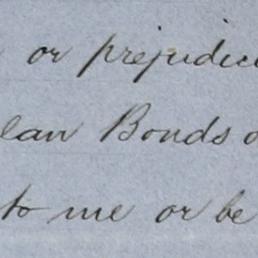 or prejudice
lan Bonds
to me or be